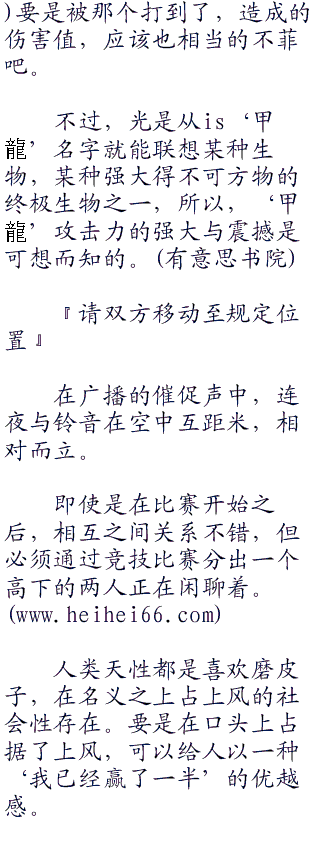 )要是被那个打到了，造成的
伤害值，应该也相当的不菲
吧。
不过，光是从is‘甲
龍’名字就能联想某种生
物，某种强大得不可方物的
终极生物之一，所以，‘甲
龍’攻击力的强大与震撼是
可想而知的。(有意思书院)
『请双方移动至规定位
置』
在广播的催促声中，连
夜与铃音在空中互距米，相
对而立。
即使是在比赛开始之
后，相互之间关系不错，但
必须通过竞技比赛分出一个
高下的两人正在闲聊着。
(www.heihei66.com)
人类天性都是喜欢磨皮
子，在名义之上占上风的社
会性存在。要是在口头上占
据了上风，可以给人以一种
‘我已经赢了一半’的优越
感。